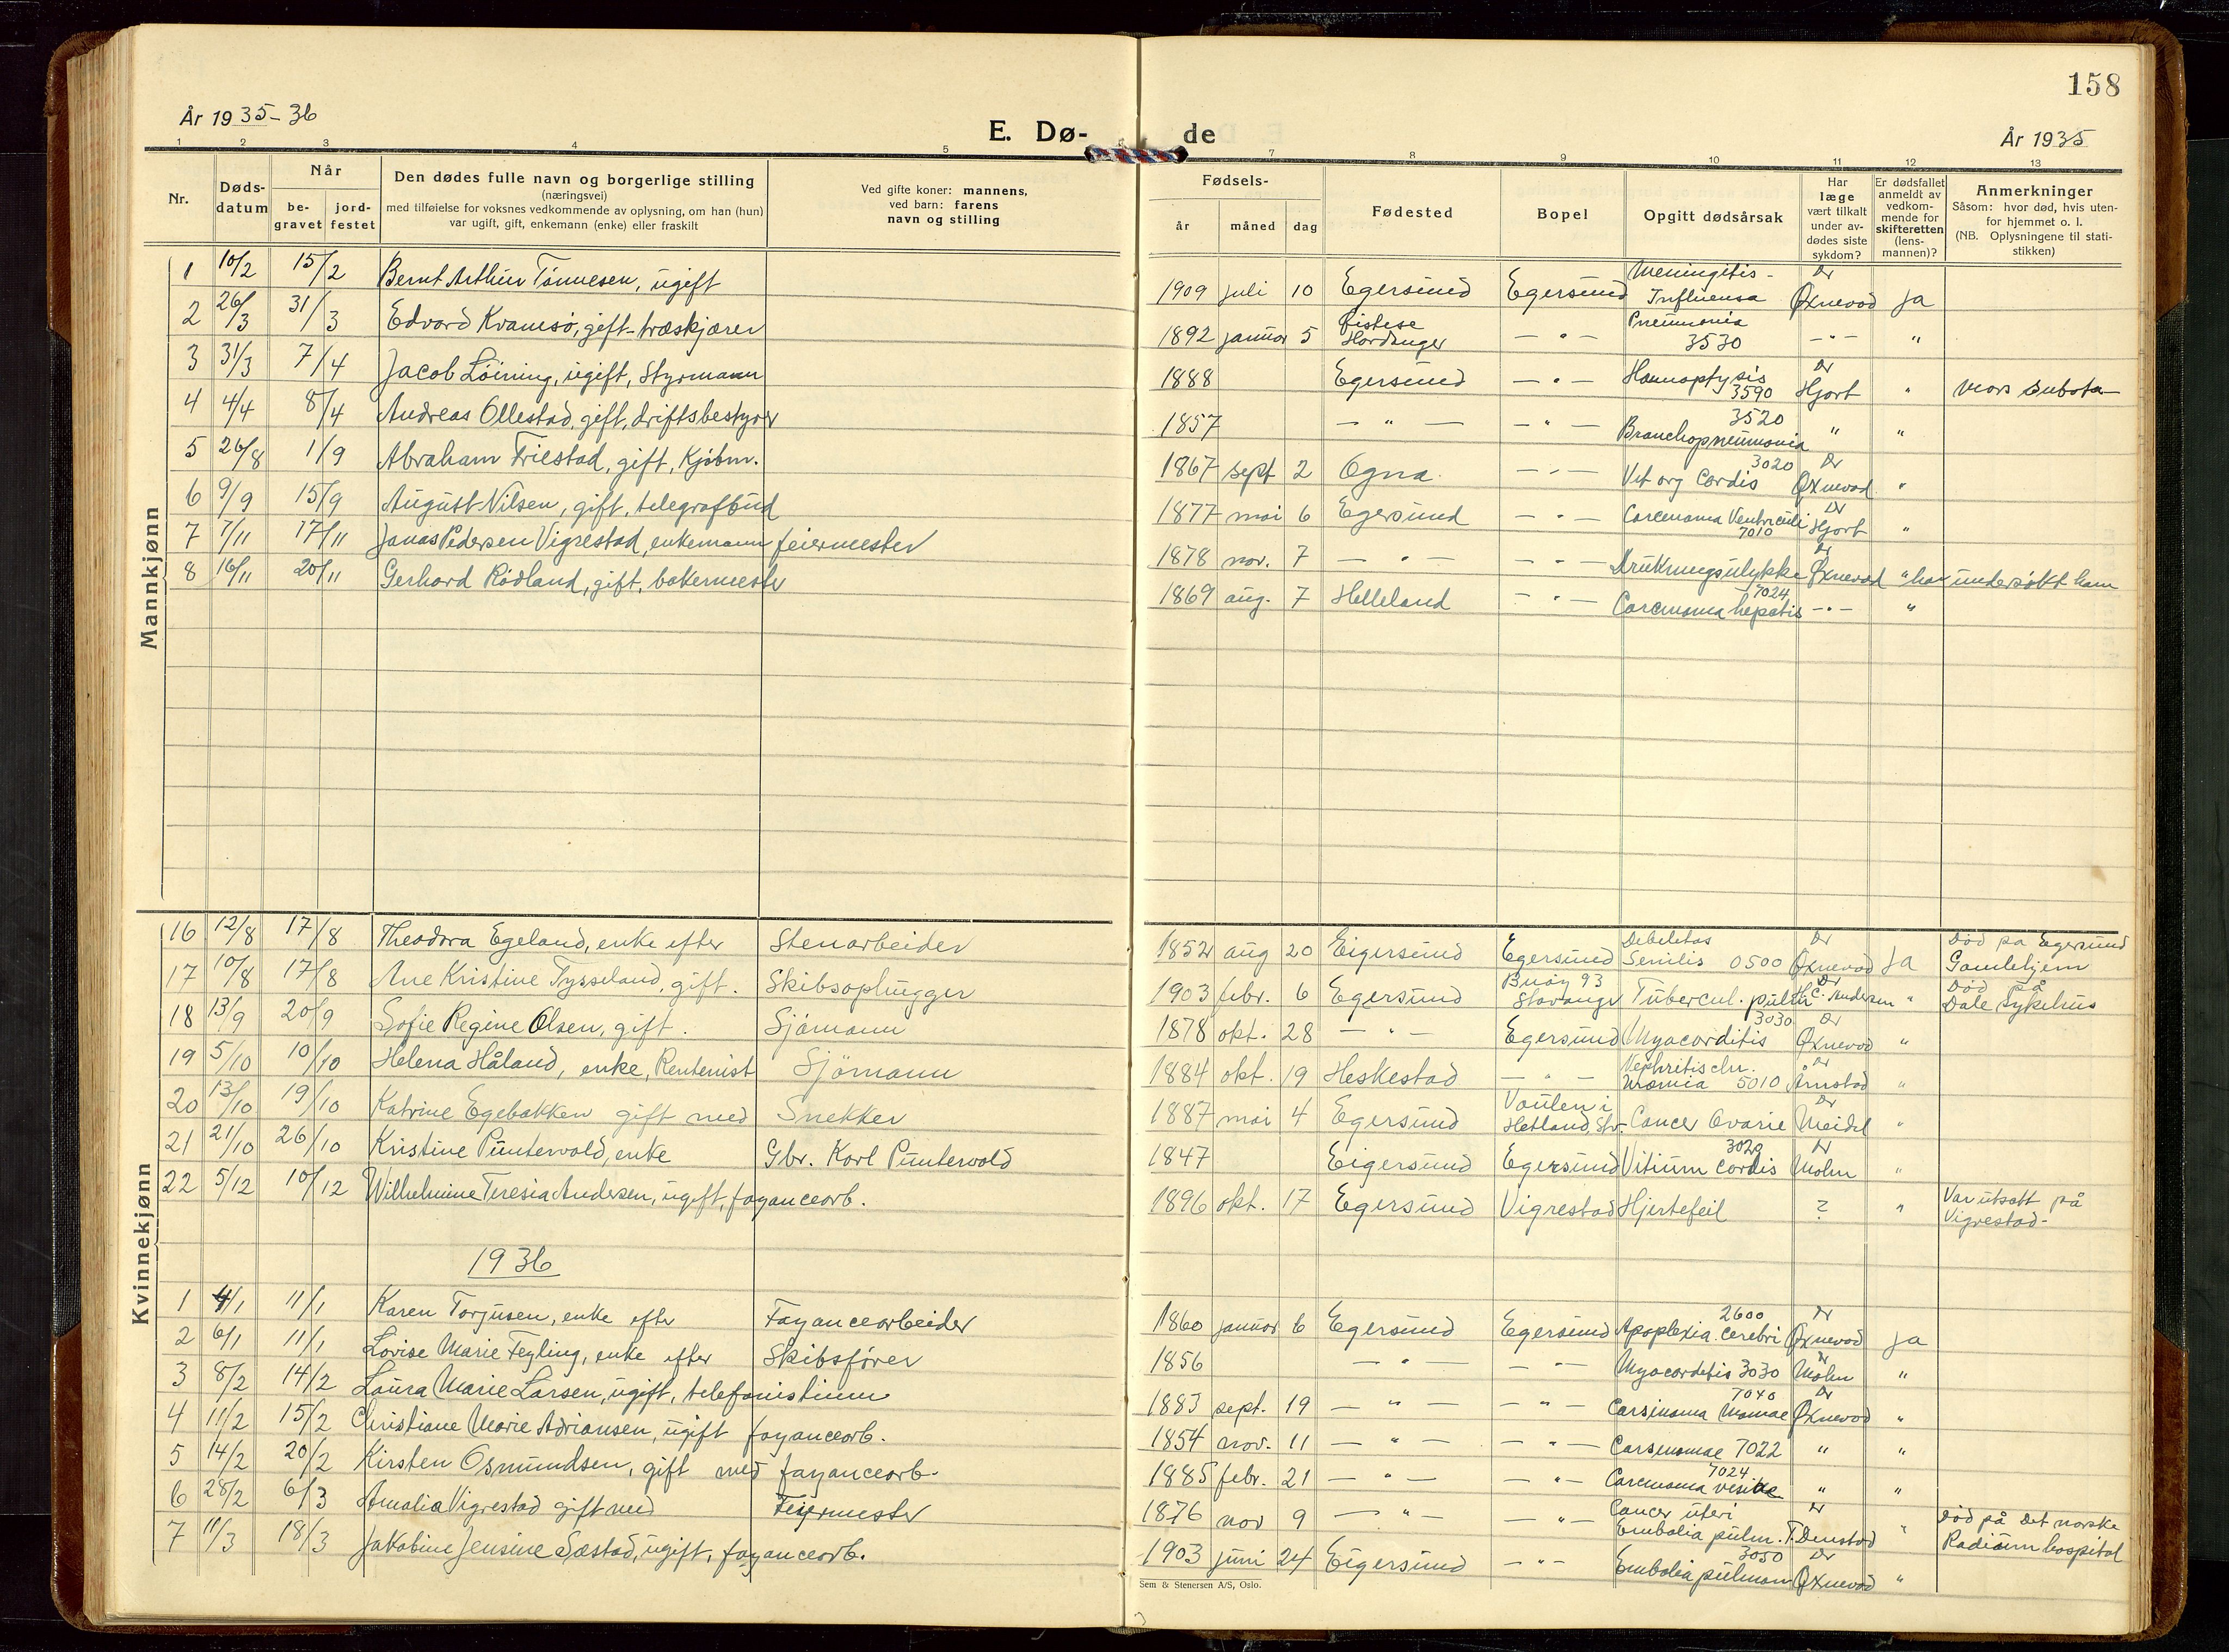 158
År 1935-36
E. Dø- de
År 1935
1 2 3 4 5 7 8 9 10 11 12 13
Nr.
Døds-
datum
Når
be-
gravet
jord-
festet
Den dødes fulle navn og borgerlige stilling
(næringsvei)
med tilføielse for voksnes vedkommende av oplysning, om han (hun)
var ugift, gift, enkemann (enke) eller fraskilt
Ved gifte koner: mannens,
ved barn: farens
navn og stilling
Fødsels-
år måned dag
Fødested
Bopel
Opgitt dødsårsak
Har
læge
vært tilkalt
under av-
dødes siste
sykdom?
Er dødsfallet
anmeldt av
vedkom-
mende for
skifteretten
(lens-
mannen)?
Anmerkninger
Såsom: hvor død, hvis uten-
for hjemmet o. l.
(NB. Oplysningene til stati-
stikken)
Mannkjønn
1 10/2 15/2 Bernt Arthur Tønnesen, ugift 1909 juli 10 Egersund Egersund Meningitis - Influensa Dr Øxnevad Ja
2 26/3 31/3 Edvard Kvamsø, gift - træskjærer 1892 januar 5 Fistese Hardanger — " — Pneumonia 3530 — " — "
3 31/3 7/4 Jacob Løining, ugift, Styrmann 1888 Egersund — " — Haemoptysis 3590 Dr Hjort " mors subita
4 4/4 8/4 Andreas Ollestad, gift, driftsbestyrer 1857 — " — — " — 3520 Bronchopneumonia " "
5 26/8 1/9 Abraham Friestad, gift, Kjøbm. 1867 sept 2 Ogna — " — 3020 Vit org Cordis Dr Øxnevad "
6 9/9 15/9 August Nilsen, gift, telegrafbud 1877 mai 6 Egersund — " — Carcinoma Ventriculi 7010 Dr Hjort "
7 7/11 17/11 Jonas Pedersen Vigrestad, enkemann feiermester 1878 nov. 7 — " — — " — Drukningsulykke Dr Øxnevad " har undersøkt ham
8 16/11 20/11 Gerhard Rødland, gift, bakermester 1869 aug. 7 Helleland — " — 7024 Carcinoma hepatis — " — "
Kvinnekjønn
16 12/8 17/8 Theodora Egeland, enke efter Stenarbeider 1852 aug 20 Eigersund Egersund Debelitas Senilis 0500 Dr Øxnevad Ja Død på Egersund Gamlehjem
17 10/8 17/8 Ane Kristine Tysseland, gift. Skibsophugger 1903 febr. 6 Egersund Buøy 93 Stavanger Tubercul. pulm Dr H.C. Andersen " Død på Dale sykehus
18 13/9 20/9 Sofie Regine Olsen, gift. Sjømann 1878 okt. 28 — " — Egersund 3030 Myocarditis Dr Øxnevad "
19 5/10 10/10 Helena Håland, enke, Rentenist Sjømann 1884 okt. 19 Heskestad — " — Nephritis chr. Uræmia 5010 Dr Årnstad "
20 13/10 19/10 Katrine Egebakken gift med Snekker 1887 mai 4 Egersund Vaulen i Hetland, Stv. Cancer Ovarie Dr Meidel "
21 21/10 26/10 Kristine Puntervold, enke Gbr. Karl Puntervold 1847 Eigersund Egersund 3020 Vitium cordis Dr Mohn "
22 5/12 10/12 Wilhelmine Teresia Andersen, ugift, fayancearb. 1896 okt. 17 Egersund Vigrestad Hjertefeil ? " Var utsatt på Vigrestad-
1936
1 4/1 11/1 Karen Torjusen, enke efter Fayancearbeider 1860 januar 6 Egersund Egersund 2600 Apoplexia cerebri Dr Øxnevad Ja
2 6/1 11/1 Lovise Marie Feyling, enke efter Skibsfører 1856 — " — — " — Myocarditis 3030 Dr Mohn "
3 8/2 14/2 Laura Marie Larsen, ugift, telefonistinne 1883 sept. 19 — " — — " — 7040 Carsinoma Mamae Dr Øxnevad "
4 11/2 15/2 Christiane Marie Adriansen, ugift fayancearb. 1854 nov. 11 — " — — " — Carsinomae 7022 " "
5 14/2 20/2 Kirsten Osmundsen, gift med fayancearb. 1885 febr. 21 — " — — " — 7024 Carcinoma " "
6 28/2 6/3 Amalia Vigrestad gift med Feiermester 1876 nov 9 — " — — " — Cancer uteri Embolia pulm. Dr T. Denstad " Død på Det norske Radium hospital
7 11/3 18/3 Jakobine Jensine Sæstad, ugift, fayancearb. 1903 juni 24 Eigersund — " — 3050 Embolia pulmon Dr Øxnevad "
Sem & Stenersen A/S, Oslo.